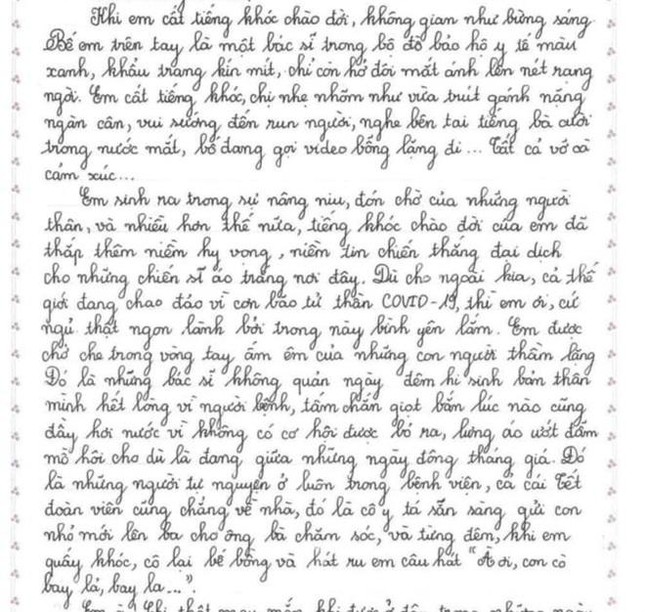 Khi em cất tiếng khóc chào đời, không gian như bừng sáng.
Bế em trên tay là một bác sĩ trong bộ đồ bảo hộ y tế màu
xanh, khẩu trang kín mít, chỉ còn hở đôi mắt ánh lên nét rạng
ngời. Em cất tiếng khóc, chị nhẹ nhõm như vừa trút gánh nặng
ngàn cân, vui sướng đến run người, nghe bên tai tiếng bà cười
trong nước mắt, bố đang gọi video bỗng lặng đi... Tất cả vỡ oà
cảm xúc...
Em sinh ra trong sự nâng niu, đón chờ của những người
thân, và nhiều hơn thế nữa, tiếng khóc chào đời của em đã
thắp thêm niềm hy vọng, niềm tin chiến thắng đại dịch
cho những chiến sĩ áo trắng nơi đây. Dù cho ngoài kia, cả thế
giới đang chao đảo vì cơn bão tử thần COVID-19, thì em ơi, cứ
ngủ thật ngon lành bởi trong này bình yên lắm. Em được
chở che trong vòng tay ấm êm của những con người thầm lặng
Đó là những bác sĩ không quản ngày đêm hi sinh bản thân
mình hết lòng vì người bệnh, tấm chắn giọt bắn lúc nào cũng
đầy hơi nước vì không có cơ hội được bỏ ra, lưng áo ướt đẫm
mồ hôi cho dù là đang giữa những ngày đông tháng giá. Đó
là những người tự nguyện ở luôn trong bệnh viện, cả cái Tết
đoàn viên cũng chẳng về nhà, đó là cô y tá sẵn sàng gửi con
nhỏ mới lên ba cho ông bà chăm sóc, và từng đêm, khi em
quấy khóc, cô lại bế bồng và hát ru em câu hát "À ơi, con cò
bay lả, bay la...".